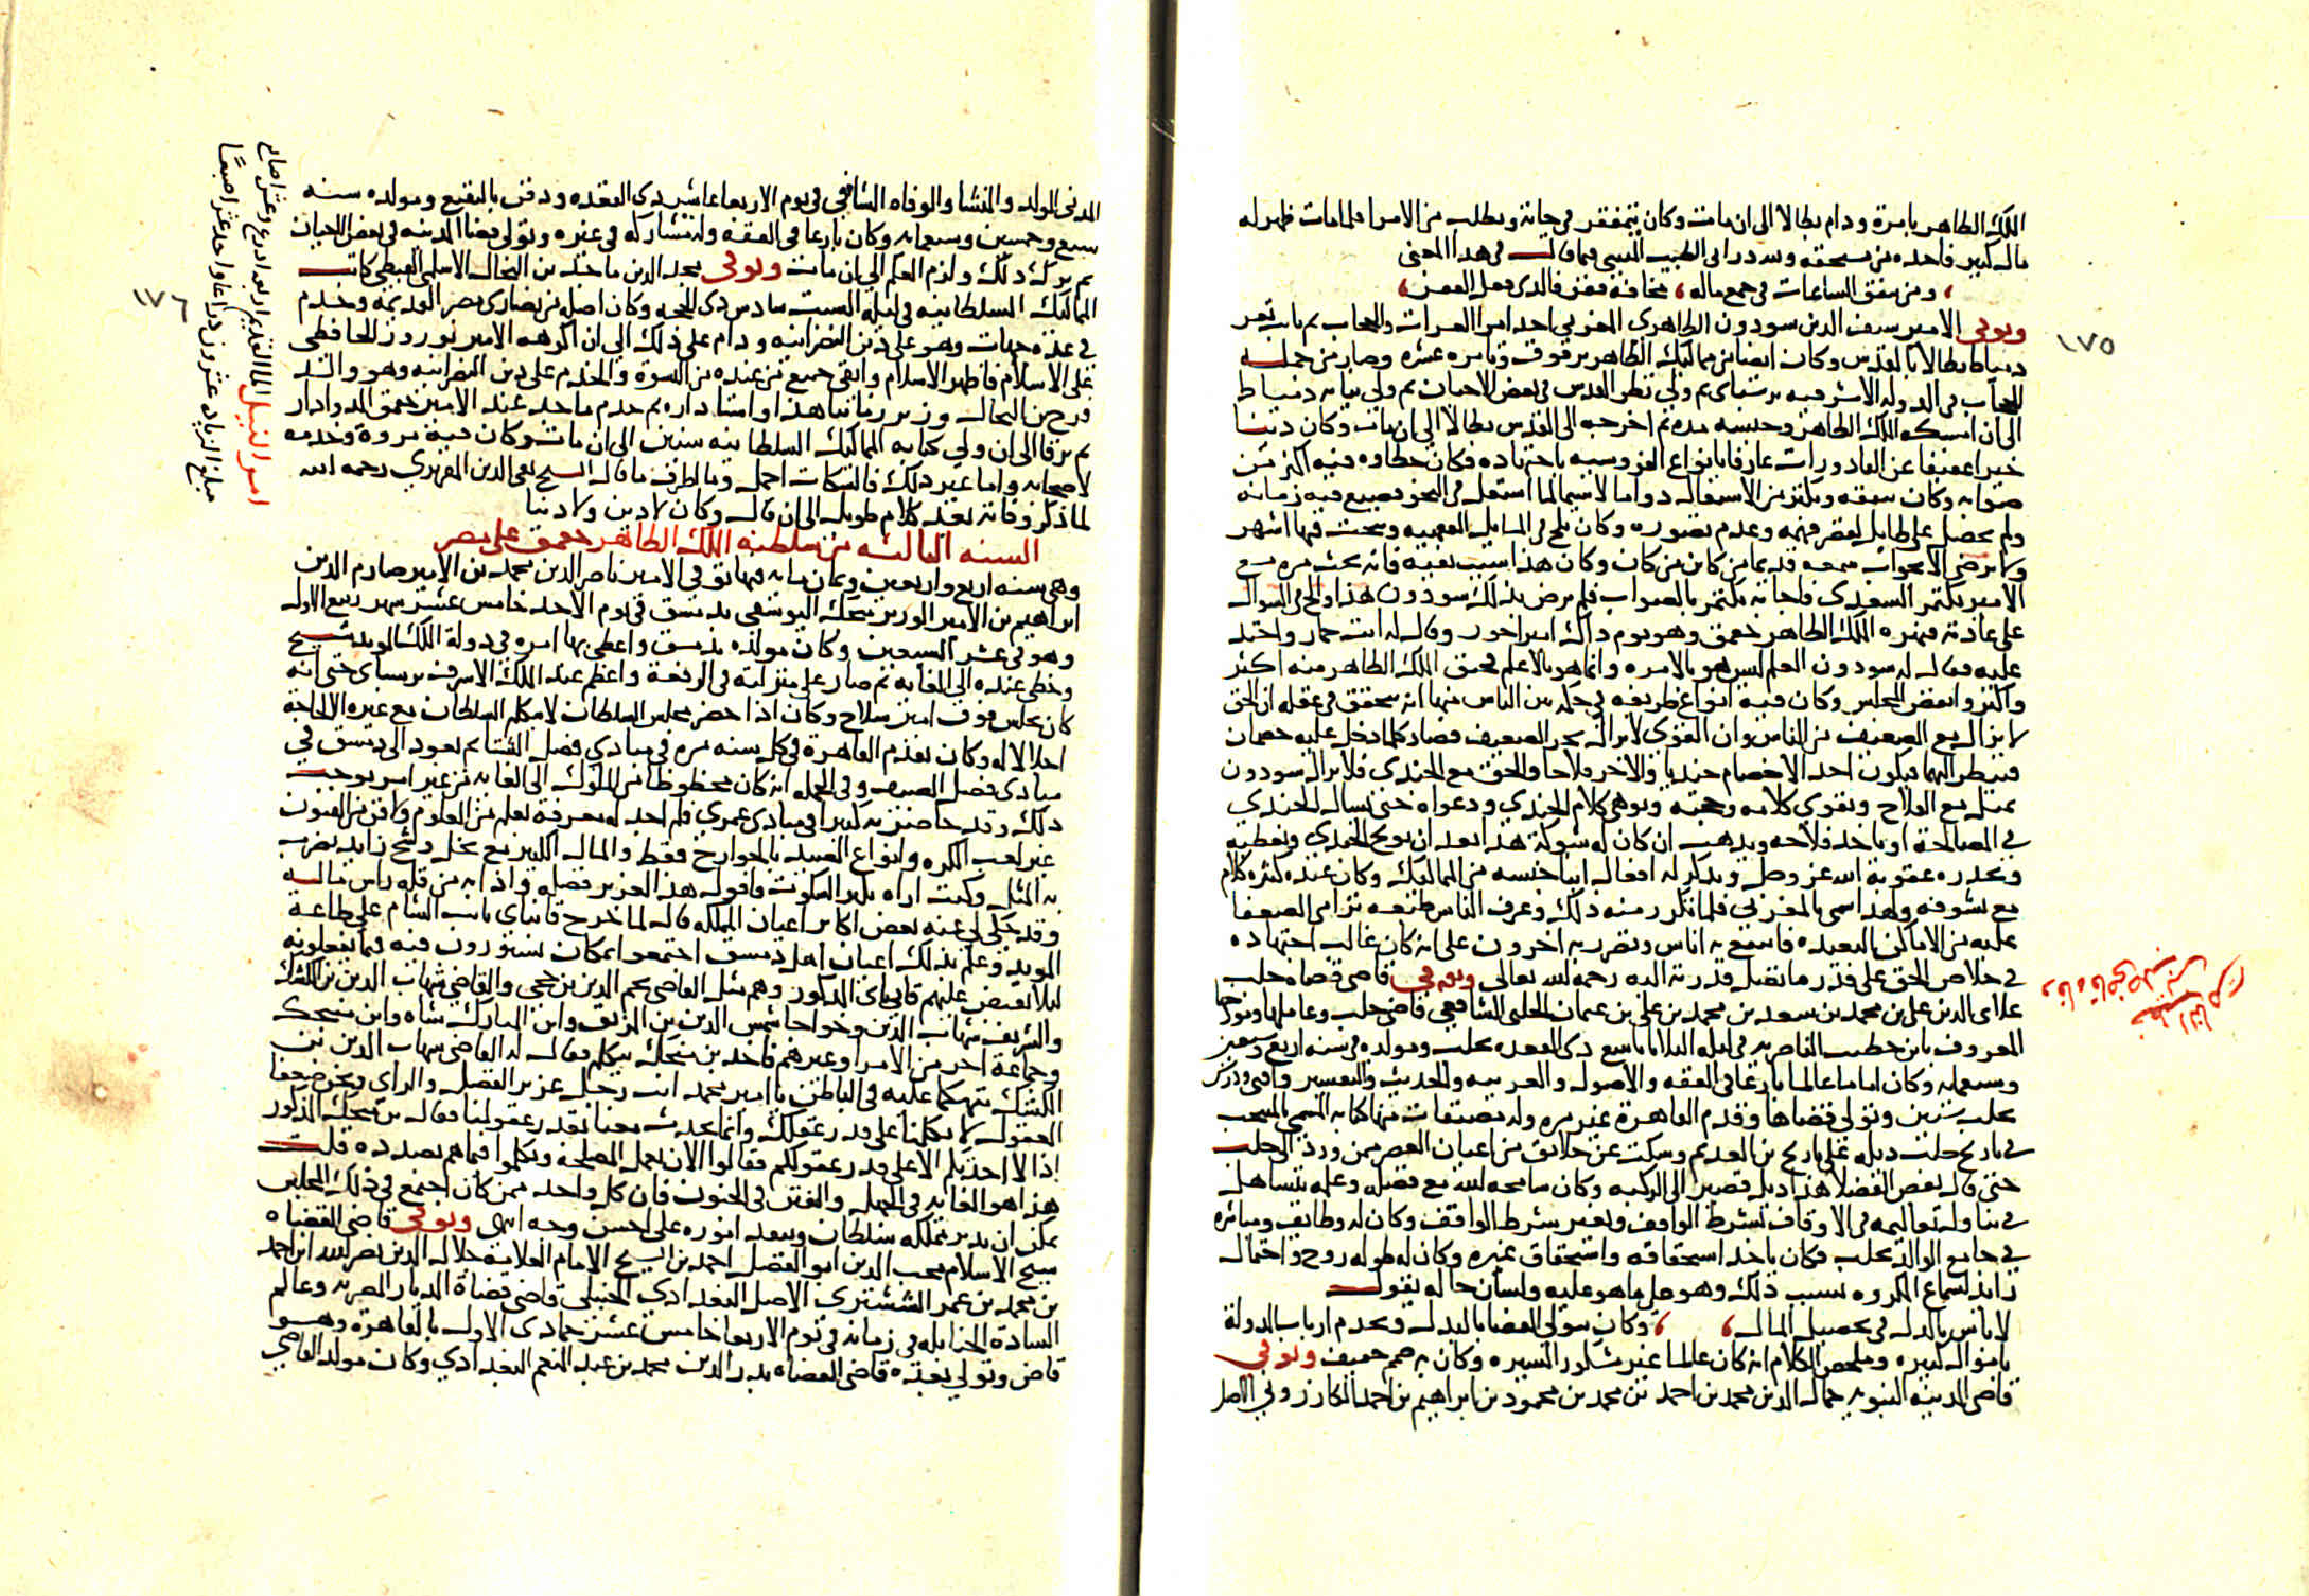 الملك الظاهر بامرة ودام بطالا الى ان مات وكان يتمفقر في حياته ويطلب من الامرا فلما مات ظهر له
مال كبير فاخده من يستحقه ولله در ابى الطيب المتنبى فيما قال في هدا المعنى
ومن ينفق الساعات في جمع ماله مخافة فقر فالدى فعل الفقر
وتوفى الامير سيف الدين سودون الظاهرى المغربي احد امرا العشرات والحجاب ثم نايب ثغر
دمياط بطالا بالقدس وكان ايضا من مماليك الظاهر برقوق وتامر عشره وصار من جمله
الحجاب في الدوله الاشرفيه برسباى ثم ولى نظر القدس في بعض الاحيان ثم ولى نيابه دمياط
الى ان امسكه الملك الظاهر وحبسه مده ثم اخرجه الى القدس بطالا الى ان مات وكان دينا
خيرا عفيفا عن القادورات عارفا بانواع الفروسيه باجتهاده فكان خطاوه فيه اكثر من
صوابه وكان يتفقه ويكثر من الاشتغال دواما لاسيما لما اشتغل في النحو فضيع فيه زمانه
ولم يحصل على طايل لقصر فهمه وعدم تصوره وكان يلح في المسايل الفقهيه ويبحث فيها اشهر
ولا يرضى الا بجواب سمعه قديما من كاين من كان وكان هذا سبب نفيه فانه بحث مره مع
الامير بكتمر السعدى فاجابه بكتمر بالصواب فلم يرض بدلك سودون هذا ولح في السوال
على عادته فنهره الملك الظاهر جقمق وهو يوم داك امير اخور وقال له انت حمار واحتد
عليه فقال له سودون العلم ليس هو بالامره وانما هو بالاعلم فحنق الملك الظاهر منه اكثر
واكثر وانفض المجلس وكان فيه انواع ظريفه في حكمه بين الناس منها انه يتحقق في عقله ان الحق
لا يزال مع الضعيف من الناس وان القوى لا يزال يجور الضعيف فصار كلما دخل عليه خصمان
فينظر اليهما فيكون احد الاخصام جنديا والاخر فلاحا والحق مع الجندى فلا يزال سودون
يميل مع الفلاح ويقوى كلامه وحجته ويوهى كلام الجندي ودعواه حتى يسال الجندي
في المصالحه او ياخد فلاحه ويدهب ان كان له شوكة هدا بعد ان يوبخ الجندي ويعظه
ويحدره عقوبة الله عز وجل ويدكر له افعال ابنا جنسه من المماليك وكان عنده كثره كلام
مع نشوفه ولهدا سمى بالمغربي فلما تكرر منه دلك وعرف الناس طبعه ترامى الضعفا
عليه من الاماكن البعيده فانتفع به اناس وتضرر به اخرون على انه كان غالب اجتهاده
في خلاص الحق على قدر ما تصل قدرته اليه رحمه الله تعالى وتوفى قاضى قضاه حلب
علاى الدين على بن محمد بن سعد بن محمد بن على بن عثمان الحلبى الشافعي قاضى حلب وعاملها ومورخها
المعروف بابن خطيب الناصريه في ليله الثلاثا تاسع دى القعده بحلب ومولده في سنه اربع وسبعين
وسبعمايه وكان اماما عالما بارعا في الفقه والاصول والعربيه والحديث والتفسير وافتى ودرس
بحلب سنين وتولى قضاها وقدم القاهرة غير مره وله مصنفات منها كتابه المسمى بالمنتخب
في تاريخ حلب ديله على تاريخ بن العديم وسكت عن خلايق من اعيان العصر ممن ورد الى حلب
حتى قال بعض الفضلا هذا ديل قصير الى الركبه وكان سامحه الله مع فضله وعلمه يتساهل
في تناوله معاليمه في الاوقاف بشرط الواقف وبغير شرط الواقف وكان له وظايف ومباشره
في جامع الوالد بحلب فكان ياخد استحقاقه واستحقاق غيره وكان له طوله روح واحتمال
زايد لسماع المكروه بسبب ذلك وهو على ما هو عليه ولسان حاله يقول
لا باس بالدل في تحصيل المال وكان يتولى القضا بالبدل ويخدم ارباب الدولة
باموال كبيره وملخص الكلام انه كان عالما غير مشكور السيره وكان به صمم خفيف وتوفي
قاضى المدينه النبويه جمال الدين محمد بن احمد بن محمد بن محمود بن ابراهيم بن احمد الكازروني الاصل
١٧٥
المدنى المولد والمنشا والوفاه الشافعي في يوم الاربعا عاشر دى القعده ودفن بالبقيع ومولده سنه
سبع وخمسين وسبعمايه وكان بارعا في الفقه وله مشاركه في غيره وتولى قضا المدينه في بعض الاحيان
ثم ترك دلك ولزم العلم الى ان مات وتوفى مجد الدين ماجد بن النحال الاسلمى القبطى كاتب
المماليك السلطانيه في ليله السبت سادس دى الحجه وكان اصله من نصارى مصر القديمه وخدم
في عدة جهات وهو على دين النصرانيه ودام على ذلك الى ان اكرهه الامير نوروز الحافظى
على الاسلام فاظهر الاسلام وابقى جميع من عنده من النسوة والخدم على دين النصرانيه وهو والد
فرج بن النحال وزير زماننا هذا واستاداره ثم خدم ماجد عند الامير جقمق الدوادار
ثم ترقا الى ان ولى كتابه المماليك السلطانيه سنين الى ان مات وكان فيه مروة وخدمه
لاصحابه واما غير دلك فالسكات اجمل وما اظرف ما قال الشيخ تقى الدين المقريزي رحمه الله
لما ذكر وفاته بعد كلام طويل الى ان قال وكان لا دين ولا دنيا
السنه الثالثه من سلطنه الملك الظاهر جقمق على مصر
وهى سنه اربع واربعين وثمان مايه فيها توفى الامير ناصر الدين محمد بن الامير صارم الدين
ابراهيم بن الامير الوزير منجك اليوسفى بدمشق في يوم الاحد خامس عشر شهر ربيع الاول
وهو في عشر السبعين وكان مولده بدمشق واعطى بها امره في دولة الملك المويد شيخ
وحظى عنده الى الغايه ثم صار على منزلته في الرفعة واعظم عند الملك الاشرف برسباى حتى انه
كان يجلس فوق امير سلاح وكان اذا حضر مجلس السلطان لا يكلم السلطان مع غيره الا لحاجة
اجلالا له وكان يقدم القاهرة في كل سنه مره في مبادي فصل الشتا ثم يعود الى دمشق في
مبادى فصل الصيف وفى الجمله انه كان محظوظا من الملوك الى الغايه من غير امر يوجب
دلك وقد حاضرته كثيرا في مبادى عمرى فلم اجد له معرفة بعلم من العلوم ولا فن من الفنون
غير لعب الكره وانواع الصيد بالجوارح فقط والمال الكثير مع بخل وشح زايد يضرب
به المثل وكنت اراه يكثر السكوت فاقول هذا لغزير فضله واذا به من قله راس ماله
وقد حكى لى عنه بعض اكابر اعيان المملكه قال لما خرج قانباى نايب الشام على طاعة
المويد وعلم بدلك اعيان اهل دمشق اجتمعوا بمكان يشتورون فيه فيما يفعلونه
ليلا يقبض عليهم قانباى المدكور وهم مثل القاضى نجم الدين بن حجى والقاضى شهاب الدين بن الكشك
والشريف شهاب الدين وخواجا شمس الدين بن المزلق وابن المبارك شاه وابن منجك
وجماعة اخر من الامرا وغيرهم فاخد بن منجك يتكلم فقال له القاضى شهاب الدين بن
الكشك متهكما عليه في الباطن يا امير محمد انت رجل غزير الفضل والراى ونحن ضعفا
العقول لا تكلمنا على قدر عقلك وانما تحدث معنا بقدر عقولنا فقال بن منجك المذكور
اذا لا احدثكم الا على قدر عقولكم فقالوا الان نعمل المصلحه وتكلموا فيما هم بصدده قلت
هذا هو الغايه في الجهل والفتن في الجنون فان كل واحد ممن كان اجتمع في ذلك المجلس
يمكن ان يدبر مملكه سلطان وينفد اموره على احسن وجه انتهى وتوفى قاضى القضاه
شيخ الاسلام محب الدين ابو الفضل احمد بن الشيخ الامام العلامه جلال الدين نصر الله ابن احمد
بن محمد بن عمر الششترى الاصل البغدادى الحنبلى قاضى قضاة الديار المصريه وعالم
السادة الحنابله في زمانه في يوم الاربعا خامس عشر جمادى الاول بالقاهرة وهو
قاض وتولى بعده قاضى القضاه بدر الدين محمد بن عبد المنعم البغدادي وكان مولد القاضى
امر النيل الما القديم اربعه ادرع وعشر اصابع
مبلغ الزياده عشرون دراعا واحد عشر اصبعا
١٧٦